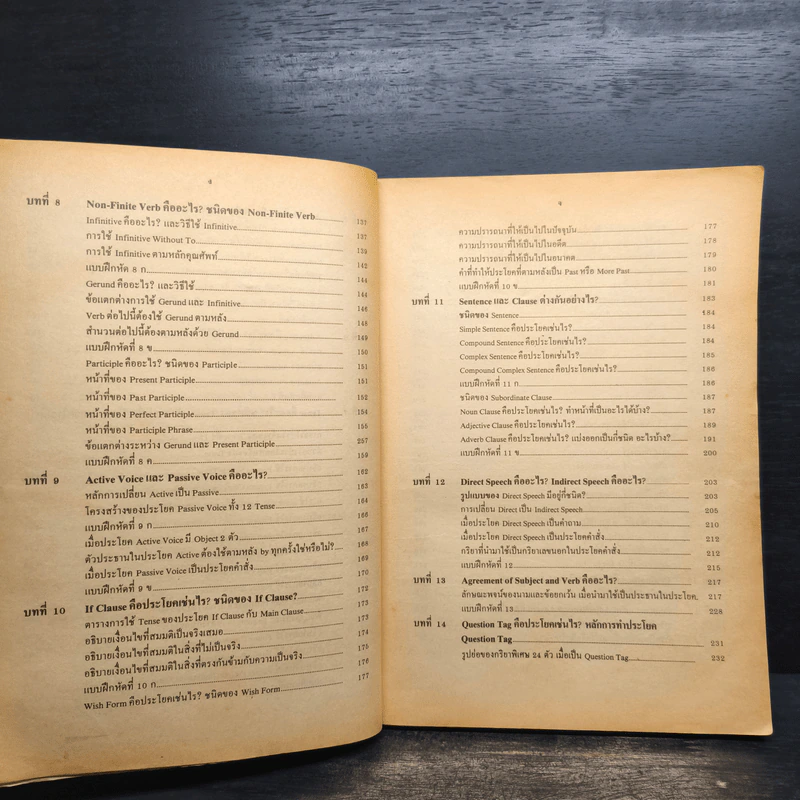 ง
บทที่ 8 Non-Finite Verb คืออะไร? ชนิดของ Non-Finite Verb
Infinitive คืออะไร? และวิธีใช้ Infinitive 137
การใช้ Infinitive Without To 137
การใช้ Infinitive ตามหลักคุณศัพท์ 139
แบบฝึกหัด 8 ก. 142
Gerund คืออะไร? และวิธีใช้ 144
ข้อแตกต่างการใช้ Gerund และ Infinitive 144
Verb ต่อไปนี้ต้องใช้ Gerund ตามหลัง 146
สำนวนต่อไปนี้ต้องตามหลังด้วย Gerund 148
แบบฝึกหัดที่ 8 ข 149
Participle คืออะไร? ชนิดของ Participle 150
หน้าที่ของ Present Participle 151
หน้าที่ของ Past Participle 152
หน้าที่ของ Perfect Participle 154
หน้าที่ของ Participle Phrase 155
ข้อแตกต่างระหว่าง Gerund และ Present Participle 257
แบบฝึกหัดที่ 8 ค 159
บทที่ 9 Active Voice และ Passive Voice คืออะไร? 162
หลักการเปลี่ยน Active เป็น Passive 163
โครงสร้างของประโยค Passive Voice ทั้ง 12 Tense 165
แบบฝึกหัดที่ 9 ก 166
เมื่อประโยค Active Voice มี Object 2 ตัว 167
ตัวประธานในประโยค Active ต้องใช้ตามหลัง by ทุกครั้งใช่หรือไม่? 168
เมื่อประโยค Passive Voice เป็นประโยคคำสั่ง 169
แบบฝึกหัดที่ 9 ข 170
บทที่ 10 If Clause คือประโยคเช่นไร? ชนิดของ If Clause? 172
ตารางการใช้ Tense ของประโยค If Clause กับ Main Clause 173
อธิบายเงื่อนไขที่สมมติเป็นจริงเสมอ 174
อธิบายเงื่อนไขที่สมมติในสิ่งที่ไม่เป็นจริง 175
อธิบายเงื่อนไขที่สมมติในสิ่งที่ตรงกันข้ามกับความเป็นจริง 175
แบบฝึกหัดที่ 10 ก. 176
Wish Form คือประโยคเช่นไร? ชนิดของ Wish Form 177
จ
ความปรารถนาที่ให้เป็นไปในปัจจุบัน 177
ความปรารถนาที่ให้เป็นไปในอดีต 178
ความปรารถนาที่ให้เป็นไปในอนาคต 179
คำที่ทำให้ประโยคที่ตามหลังเป็น Past หรือ More Past 180
แบบฝึกหัดที่ 10 ข 181
บทที่ 11 Sentence และ Clause ต่างกันอย่างไร? 183
ชนิดของ Sentence 184
Simple Sentence คือประโยคเช่นไร? 184
Compound Sentence คือประโยคเช่นไร? 184
Complex Sentence คือประโยคเช่นไร? 185
Compound Complex Sentence คือประโยคเช่นไร? 186
แบบฝึกหัดที่ 11 ก 186
ชนิดของ Subordinate Clause 187
Noun Clause คือประโยคเช่นไร? ทำหน้าที่เป็นอะไรได้บ้าง? 187
Adjective Clause คือประโยคเช่นไร? 189
Adverb Clause คือประโยคเช่นไร? แบ่งออกเป็นกี่ชนิด อะไรบ้าง? 191
แบบฝึกหัดที่ 11 ข 200
บทที่ 12 Direct Speech คืออะไร? Indirect Speech คืออะไร? 203
รูปแบบของ Direct Speech มีอยู่กี่ชนิด? 203
การเปลี่ยน Direct เป็น Indirect Speech 205
เมื่อประโยค Direct Speech เป็นคำถาม 210
เมื่อประโยค Direct Speech เป็นประโยคคำสั่ง 212
กริยาที่นำมาใช้เป็นกริยาเลขนอกในประโยคคำสั่ง 212
แบบฝึกหัดที่ 12 215
บทที่ 13 Agreement of Subject and Verb คืออะไร? 217
ลักษณะพจน์ของนามและข้อยกเว้น เมื่อนำมาใช้เป็นประธานในประโยค 217
แบบฝึกหัดที่ 13 228
บทที่ 14 Question Tag คือประโยคเช่นไร? หลักการทำประโยค
Question Tag 231
รูปย่อของกริยาพิเศษ 24 ตัว เมื่อเป็น Question Tag 232